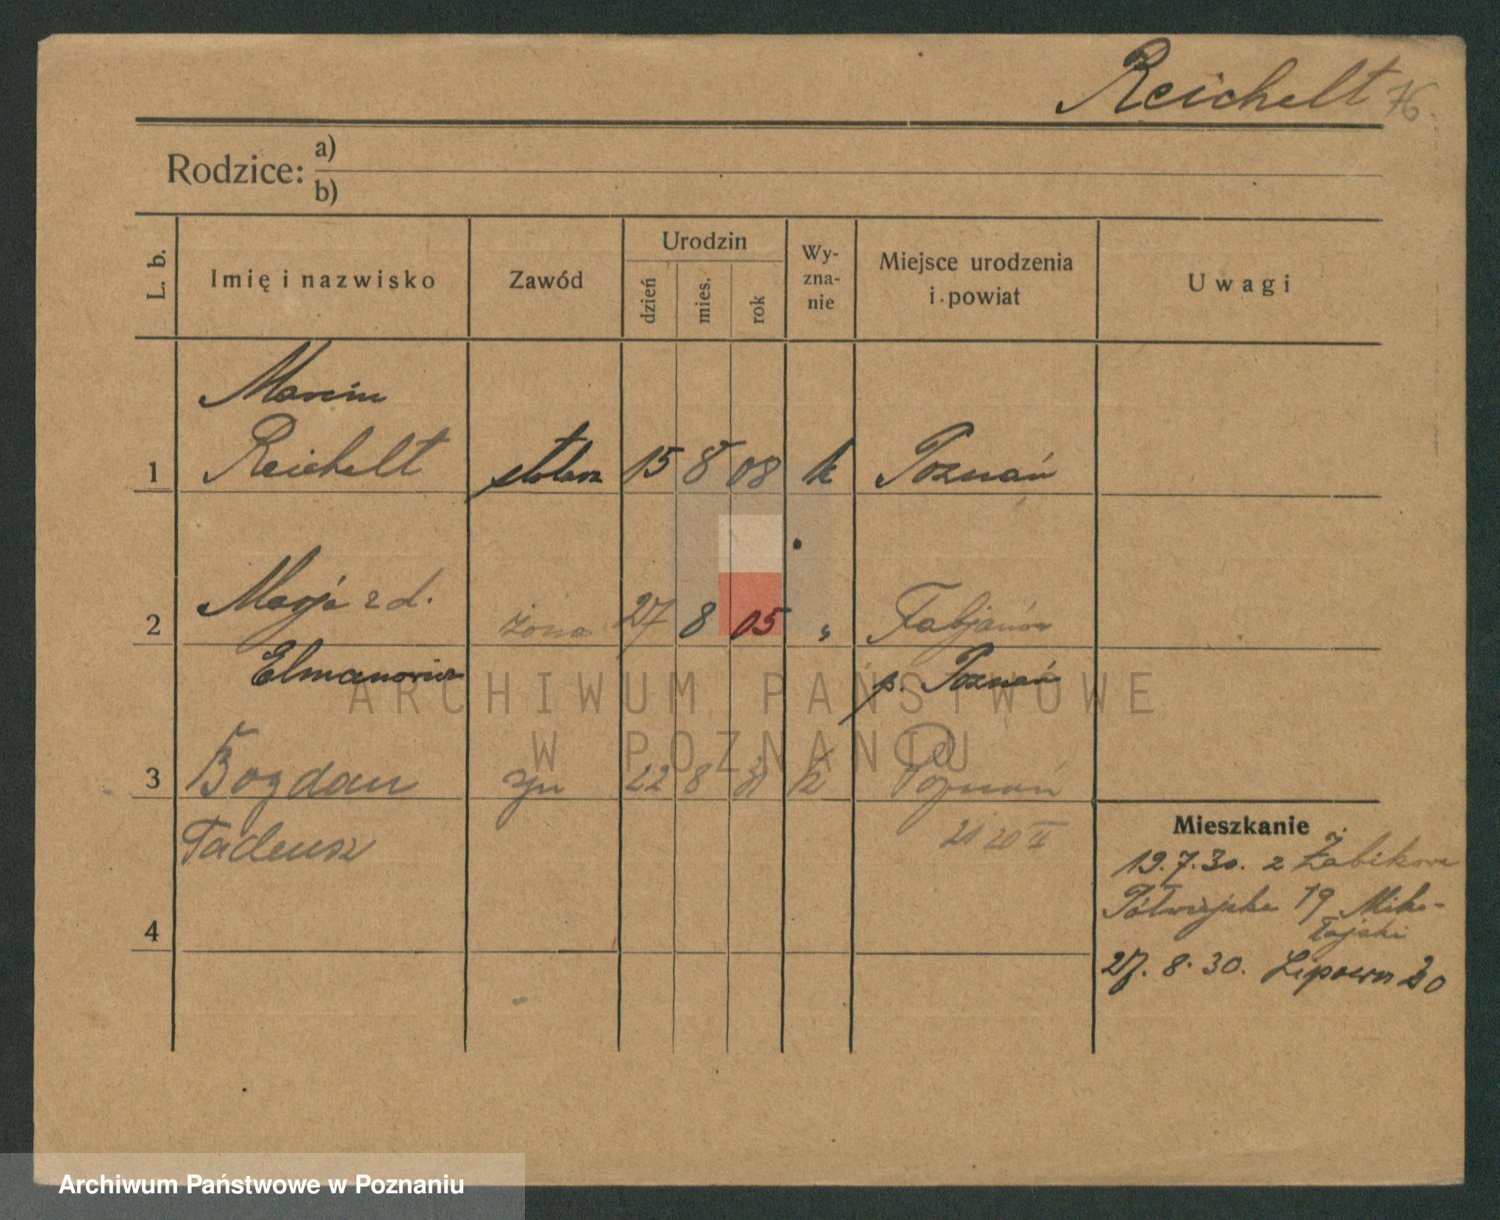 Reichelt 76.
Rodzice: a)
b)
L. b.
Imię i nazwisko
Zawód
Urodzin
dzień
mies.
rok
Wy-
zna-
nie
Miejsce urodzenia
i powiat
Uwagi
Marcin
1 Reichelt stolarz 15 8 08 k Poznań
2 Marja z d. żona 27 8 05 " Fabjanów
Elmanowicz p. Poznań
3 Bogdan syn 22 8 31 k Poznań
Tadeusz
4
Mieszkanie
19.7.30. z Żabikowa
Półwiejska 19 Miko-
łajski
27. 8. 30. Lipowa 20
ARCHIWUM PAŃSTWOWE
W POZNANIU
Archiwum Państwowe w Poznaniu